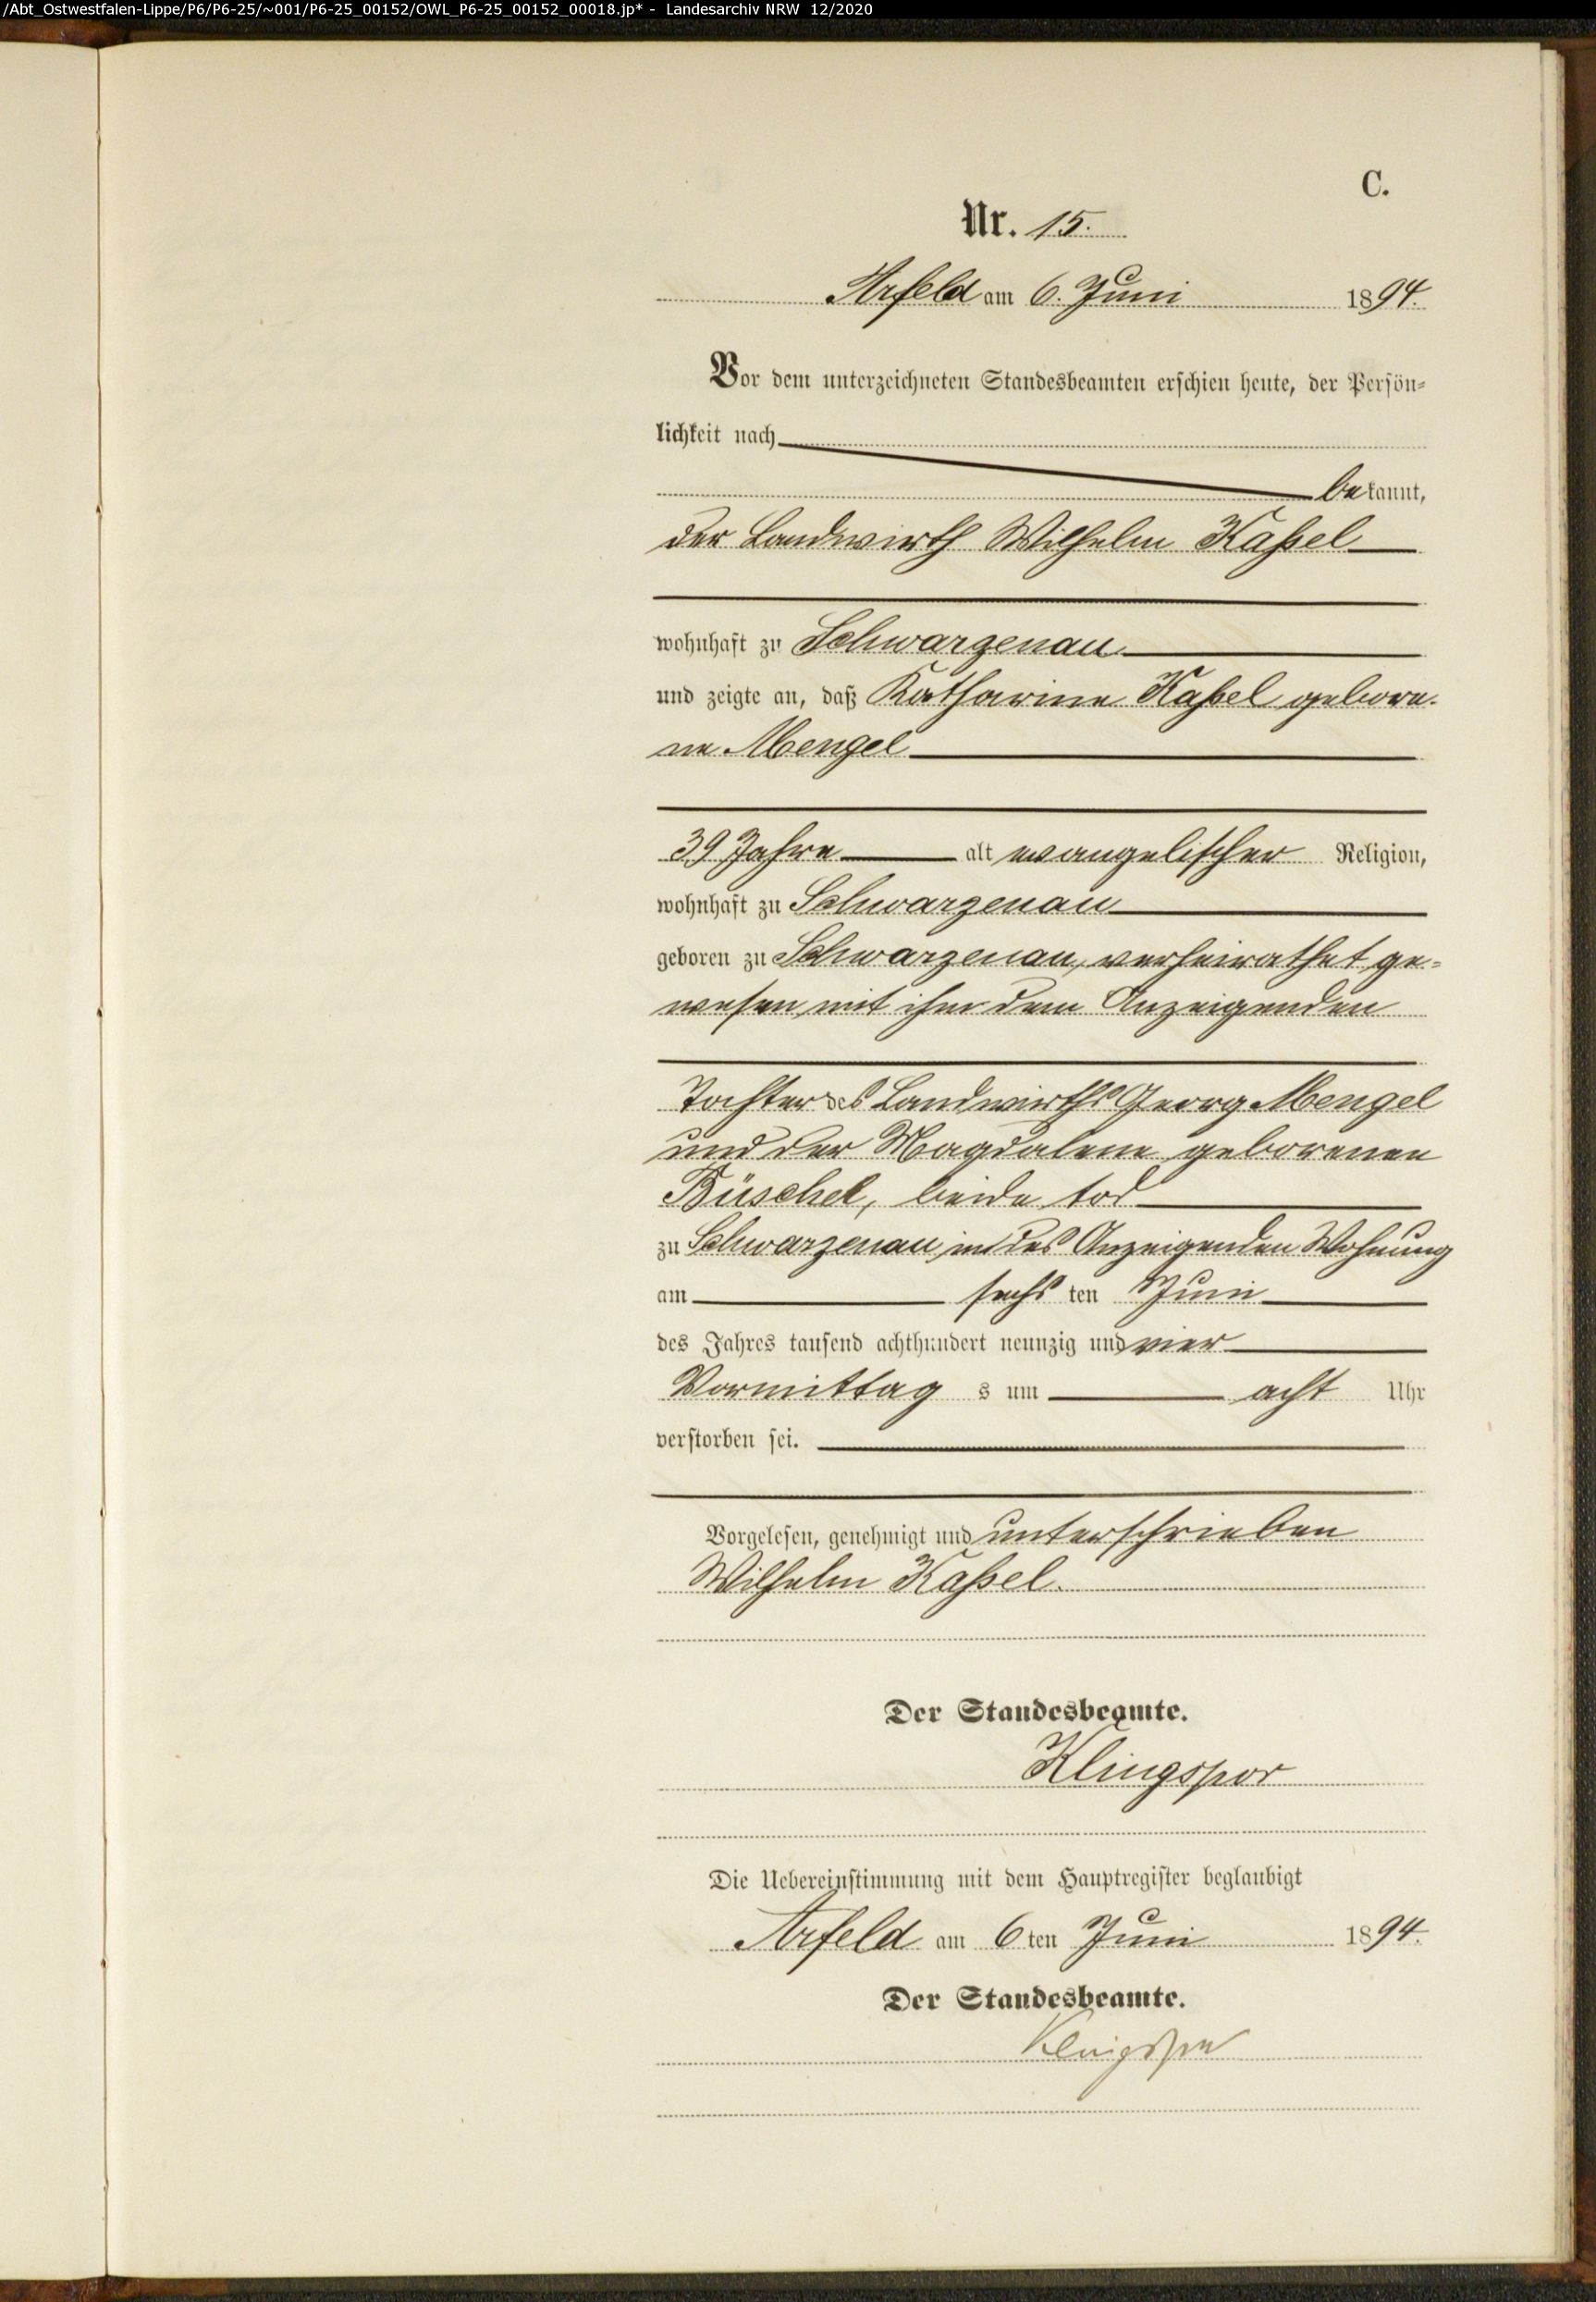 /Abt_Ostwestfalen-Lippe/P6/P6-25/~001/P6-25_00152/OWL_P6-25_00152_00018.jp* - Landesarchiv NRW 12/2020
C.
Nr. 15.
Arfeld am 6. Juni 1894.
Vor dem unterzeichneten Standesbeamten erschien heute, der Persön-
lichkeit nach
bekannt,
der Landwirth Wilhelm Kaßel
wohnhaft zu Schwarzenau
und zeigte an, daß Katharine Kaßel gebore-
ne Mengel
39 Jahre alt evangelischer Religion,
wohnhaft zu Schwarzenau
geboren zu Schwarzenau, verheirathet ge-
wesen mit ihm dem Anzeigenden
Tochter des Landwirths Georg Mengel
und der Magdalene geborenen
Büschel, beide tod
zu Schwarzenau in des Anzeigenden Wohnung
am sechs ten Juni
des Jahres tausend achthundert neunzig und vier
Vormittag s um acht Uhr
verstorben sei.
Vorgelesen, genehmigt und unterschrieben
Wilhelm Kaßel.
Der Standesbeamte.
Klingspor
Die Uebereinstimmung mit dem Hauptregister beglaubigt
Arfeld am 6ten Juni 1894.
Der Standesbeamte.
Klingspor